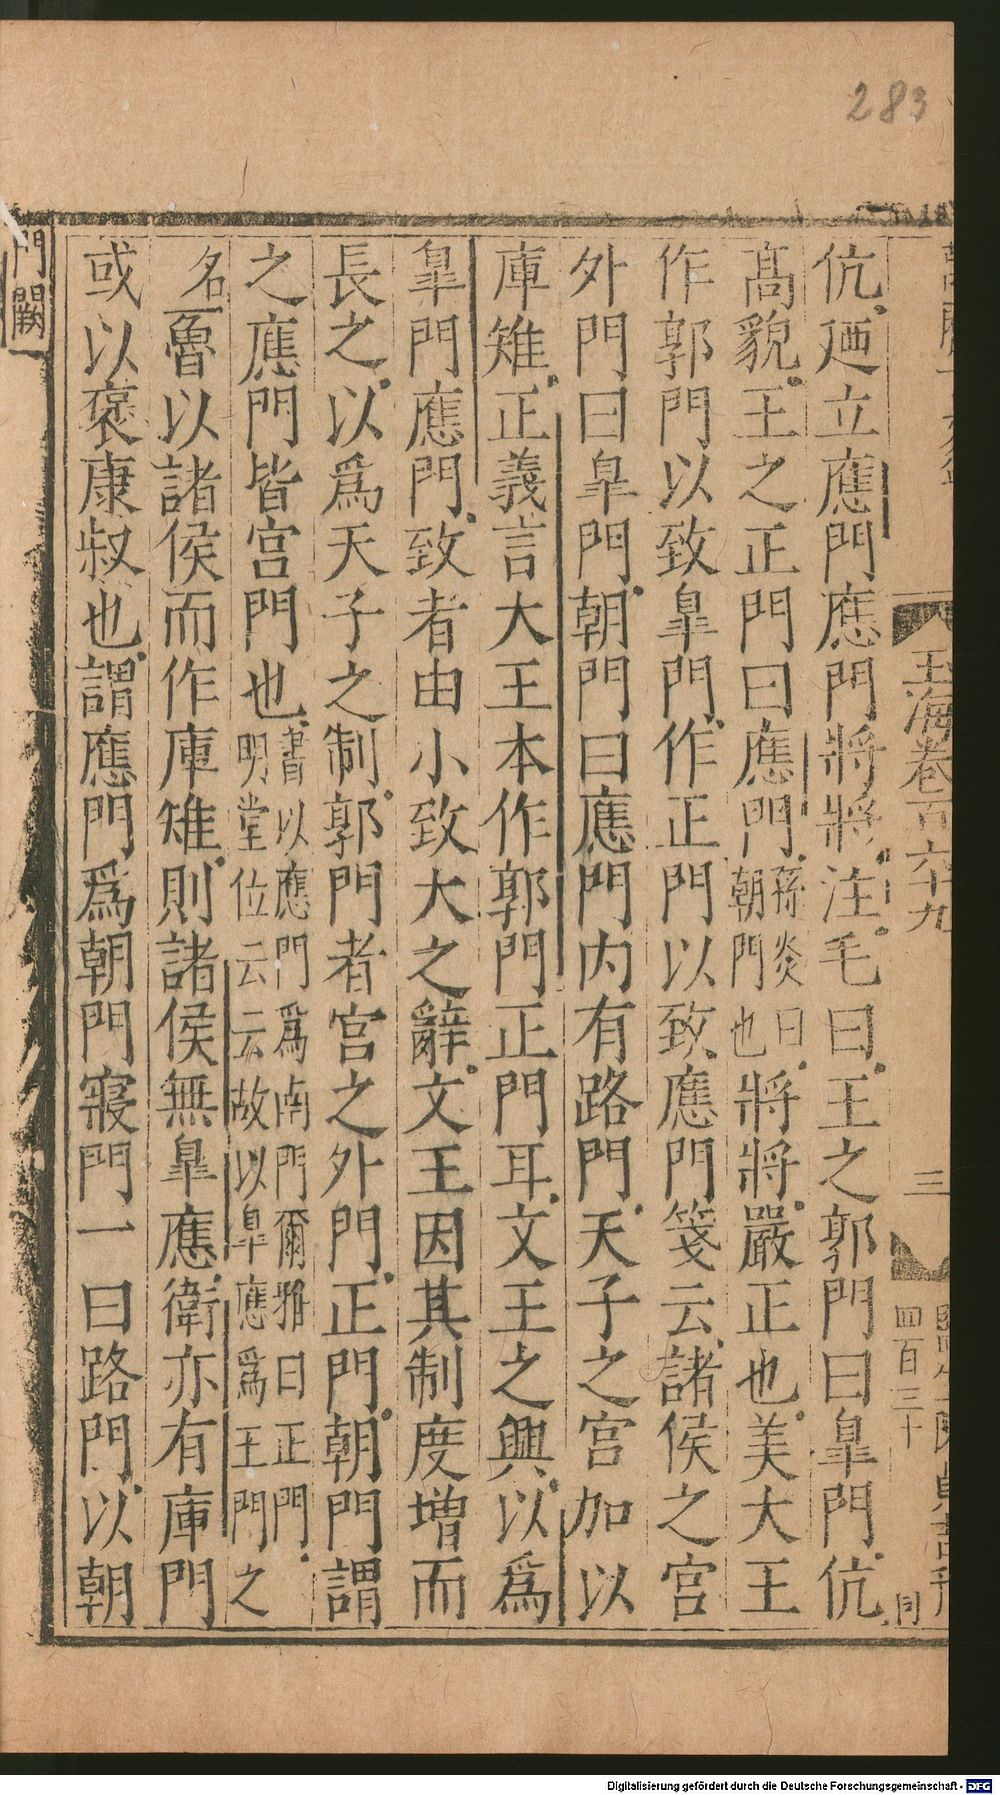 283
玉海卷百六十九
三
四百三十
同
伉廼立應門應門將將注毛曰王之郭門曰臯門伉
高貌王之正門曰應門孫炎曰朝門也將將嚴正也美大王
作郭門以致臯門作正門以致應門箋云諸侯之宮
外門曰臯門朝門曰應門内有路門天子之宮加以
庫雉正義言大王本作郭門正門耳文王之興以爲
臯門應門致者由小致大之辭文王因其制度增而
長之以爲天子之制郭門者宮之外門正門朝門謂
之應門皆宮門也書以應門爲南門爾雅曰正門明堂位云云故以臯應爲王門之
名魯以諸侯而作庫雉則諸侯無臯應衛亦有庫門
或以褒康叔也謂應門爲朝門寢門一曰路門以朝
門闕
Digitalisierung gefördert durch die Deutsche Forschungsgemeinschaft - DFG